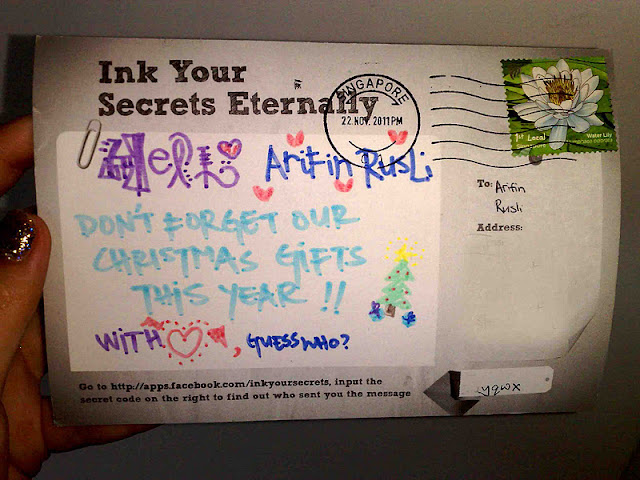 Ink Your
Secrets Eternally
SINGAPORE
22 NOV. 2011 PM
1st Local
Water Lily
Hello Arifin Rusli
DON'T FORGET OUR
CHRISTMAS GIFTS
THIS YEAR !!
WITH , GUESS WHO?
To: Arifin
Rusli
Address:
Go to http://apps.facebook.com/inkyoursecrets, input the
secret code on the right to find out who sent you the message
yqwx